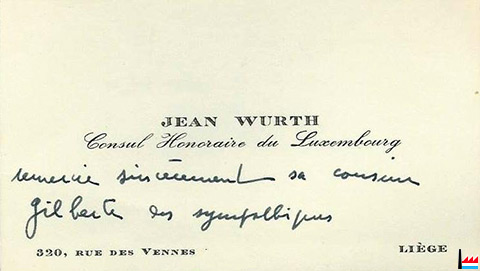 JEAN WURTH
Consul Honoraire du Luxembourg
remercie sincèrement sa cousine
Gilberte des sympathiques
320, RUE DES VENNES LIÈGE